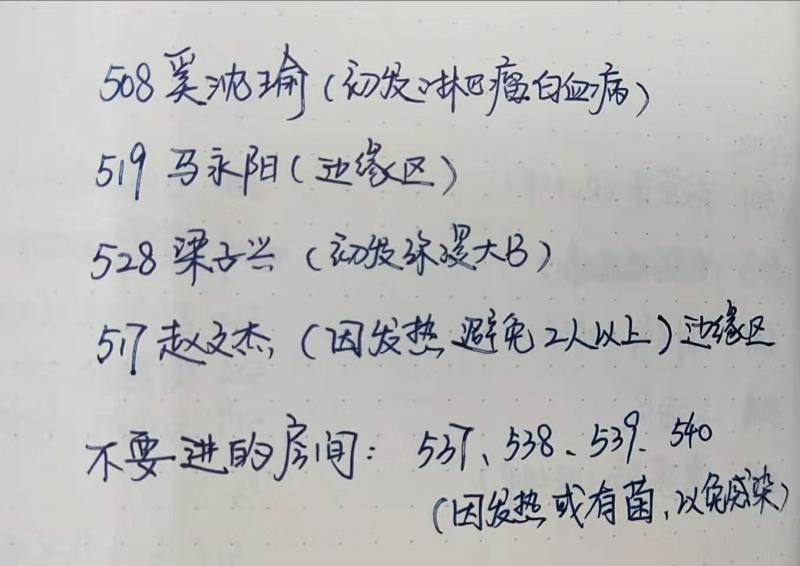 508 奚沈瑜(初发淋巴瘤白血病)
519 马永阳(边缘区)
528 梁子兴(初发弥漫大B)
517 赵文杰,(因发热避免2人以上)边缘区
不要进的房间:537、538、539、540
(因发热或有菌,以免感染)